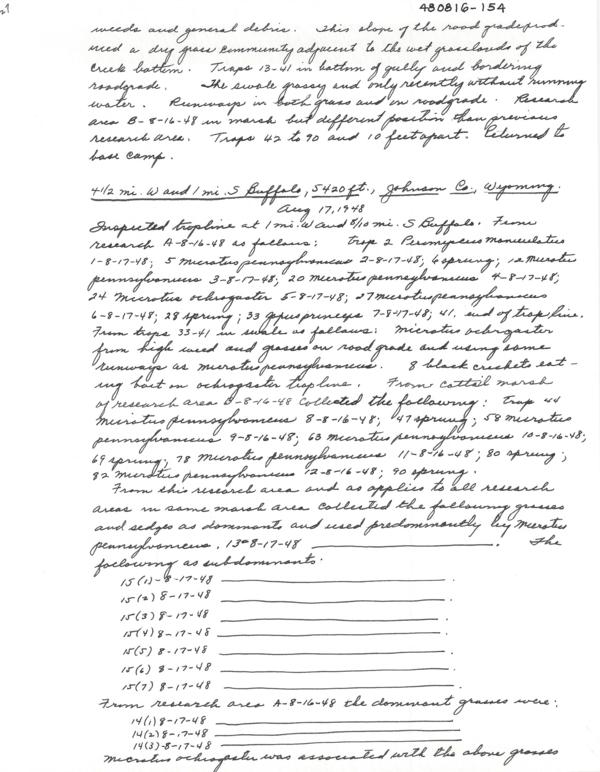 480816-154
weeds and general debris. This slope of the road grade prod-
uced a dry grass community adjacent to the wet grasslands of the
creek bottom. Traps 13-41 in bottom of gully and bordering
roadgrade. The swale grassy and only recently without running
water. Runways in both grass and on roadgrade. Research
area B-8-16-48 in marsh but different position than previous
research area. Traps 42 to 90 and 10 feet apart. Returned to
base camp.
4 1/2 mi. W and 1 mi. S Buffalo, 5420 ft., Johnson Co., Wyoming.
Aug 17, 1948
Inspected trapline at 1 mi. W and 8/10 mi. S Buffalo. From
research A-8-16-48 as follows: trap 2 Peromyscus maniculatus
1-8-17-48; 5 Microtus pennsylvanicus 2-8-17-48; 6 sprung; 12 Microtus
pennsylvanicus 3-8-17-48; 20 Microtus pennsylvanicus 4-8-17-48;
24 Microtus ochrogaster 5-8-17-48; 27 Microtus pennsylvanicus
6-8-17-48; 28 sprung; 33 Zapus princeps 7-8-17-48; 41, end of trap line.
From traps 33-41 in swale as follows: Microtus ochrogaster
from high weed and grasses on road grade and using some
runways as Microtus pennsylvanicus. 8 black crickets eat-
ing bait on ochrogaster trapline. From cattail marsh
of research area B-8-16-48 collected the following: trap 44
Microtus pennsylvanicus 8-8-16-48; 47 sprung; 58 Microtus
pennsylvanicus 9-8-16-48; 63 Microtus pennsylvanicus 10-8-16-48;
69 sprung; 78 Microtus pennsylvanicus 11-8-16-48; 80 sprung;
82 Microtus pennsylvanicus 12-8-16-48; 90 sprung.
From this research area and as applies to all research
areas in same marsh area collected the following grasses
and sedges as dominants and used predominantly by Microtus
pennsylvanicus. 13-8-17-48 ____. The
following as subdominants.
15(1)-8-17-48 ____.
15(2) 8-17-48 ____.
15(3) 8-17-48 ____.
15(4) 8-17-48 ____.
15(5) 8-17-48 ____.
15(6) 8-17-48 ____.
15(7) 8-17-48 ____.
From research area A-8-16-48 the dominant grasses were:
14(1) 8-17-48 ____
14(2) 8-17-48 ____
14(3)-8-17-48 ____
Microtus ochrogaster was associated with the above grasses